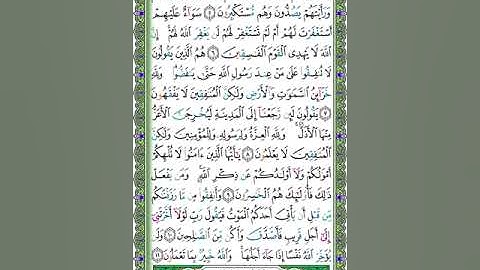 وَرَأَيْتَهُمْ يَصُدُّونَ وَهُم مُّسْتَكْبِرُونَ ٥ سَوَآءٌ عَلَيْهِمْ
أَسْتَغْفَرْتَ لَهُمْ أَمْ لَمْ تَسْتَغْفِرْ لَهُمْ لَن يَغْفِرَ ٱللَّهُ لَهُمْ ۚ إِنَّ
ٱللَّهَ لَا يَهْدِى ٱلْقَوْمَ ٱلْفَٰسِقِينَ ٦ هُمُ ٱلَّذِينَ يَقُولُونَ
لَا تُنفِقُوا۟ عَلَىٰ مَنْ عِندَ رَسُولِ ٱللَّهِ حَتَّىٰ يَنفَضُّوا۟ ۗ وَلِلَّهِ
خَزَآئِنُ ٱلسَّمَٰوَٰتِ وَٱلْأَرْضِ وَلَٰكِنَّ ٱلْمُنَٰفِقِينَ لَا يَفْقَهُونَ
٧ يَقُولُونَ لَئِن رَّجَعْنَآ إِلَى ٱلْمَدِينَةِ لَيُخْرِجَنَّ ٱلْأَعَزُّ
مِنْهَا ٱلْأَذَلَّ ۚ وَلِلَّهِ ٱلْعِزَّةُ وَلِرَسُولِهِۦ وَلِلْمُؤْمِنِينَ وَلَٰكِنَّ
ٱلْمُنَٰفِقِينَ لَا يَعْلَمُونَ ٨ يَٰٓأَيُّهَا ٱلَّذِينَ ءَامَنُوا۟ لَا تُلْهِكُمْ
أَمْوَٰلُكُمْ وَلَآ أَوْلَٰدُكُمْ عَن ذِكْرِ ٱللَّهِ ۚ وَمَن يَفْعَلْ
ذَٰلِكَ فَأُو۟لَٰٓئِكَ هُمُ ٱلْخَٰسِرُونَ ٩ وَأَنفِقُوا۟ مِن مَّا رَزَقْنَٰكُم
مِّن قَبْلِ أَن يَأْتِىَ أَحَدَكُمُ ٱلْمَوْتُ فَيَقُولَ رَبِّ لَوْلَآ أَخَّرْتَنِىٓ
إِلَىٰٓ أَجَلٍ قَرِيبٍ فَأَصَّدَّقَ وَأَكُن مِّنَ ٱلصَّٰلِحِينَ ١٠ وَلَن
يُؤَخِّرَ ٱللَّهُ نَفْسًا إِذَا جَآءَ أَجَلُهَا ۚ وَٱللَّهُ خَبِيرٌۢ بِمَا تَعْمَلُونَ ١١